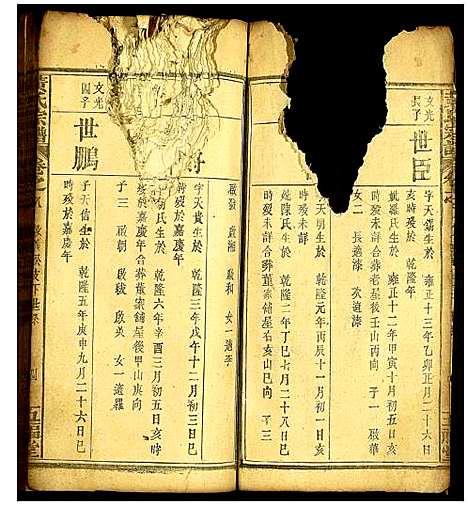 文光
長子
世臣
字天錫生於 雍正十三年乙卯正月二十六日
亥時歿於 乾隆年
氏生於 雍正十二年甲寅十月初五日
時歿未詳合葬老屋後壬山丙向 子一 啟華
女二 長適漆 次適漆
字天明生於 乾隆元年丙辰十一月初六日
時歿未詳
娶陳氏生於 乾隆二年丁巳七月二十八日
時歿未詳合葬董家舖屋右亥山巳向 子三
啟發 啟湘 啟和 女一適李
字天貴生於 乾隆三年戊午十二月初三日巳
時歿於嘉慶年
氏生於 乾隆六年辛酉三月初五日亥時
歿於嘉慶年合葬董家舖屋後甲山庚向
子三 啟朝 啟秡 啟英 女一適羅
文光
四子
世鵬
字天信生於 乾隆五年庚申九月二十六日巳
時歿於嘉慶年
黃氏宗譜
五福堂